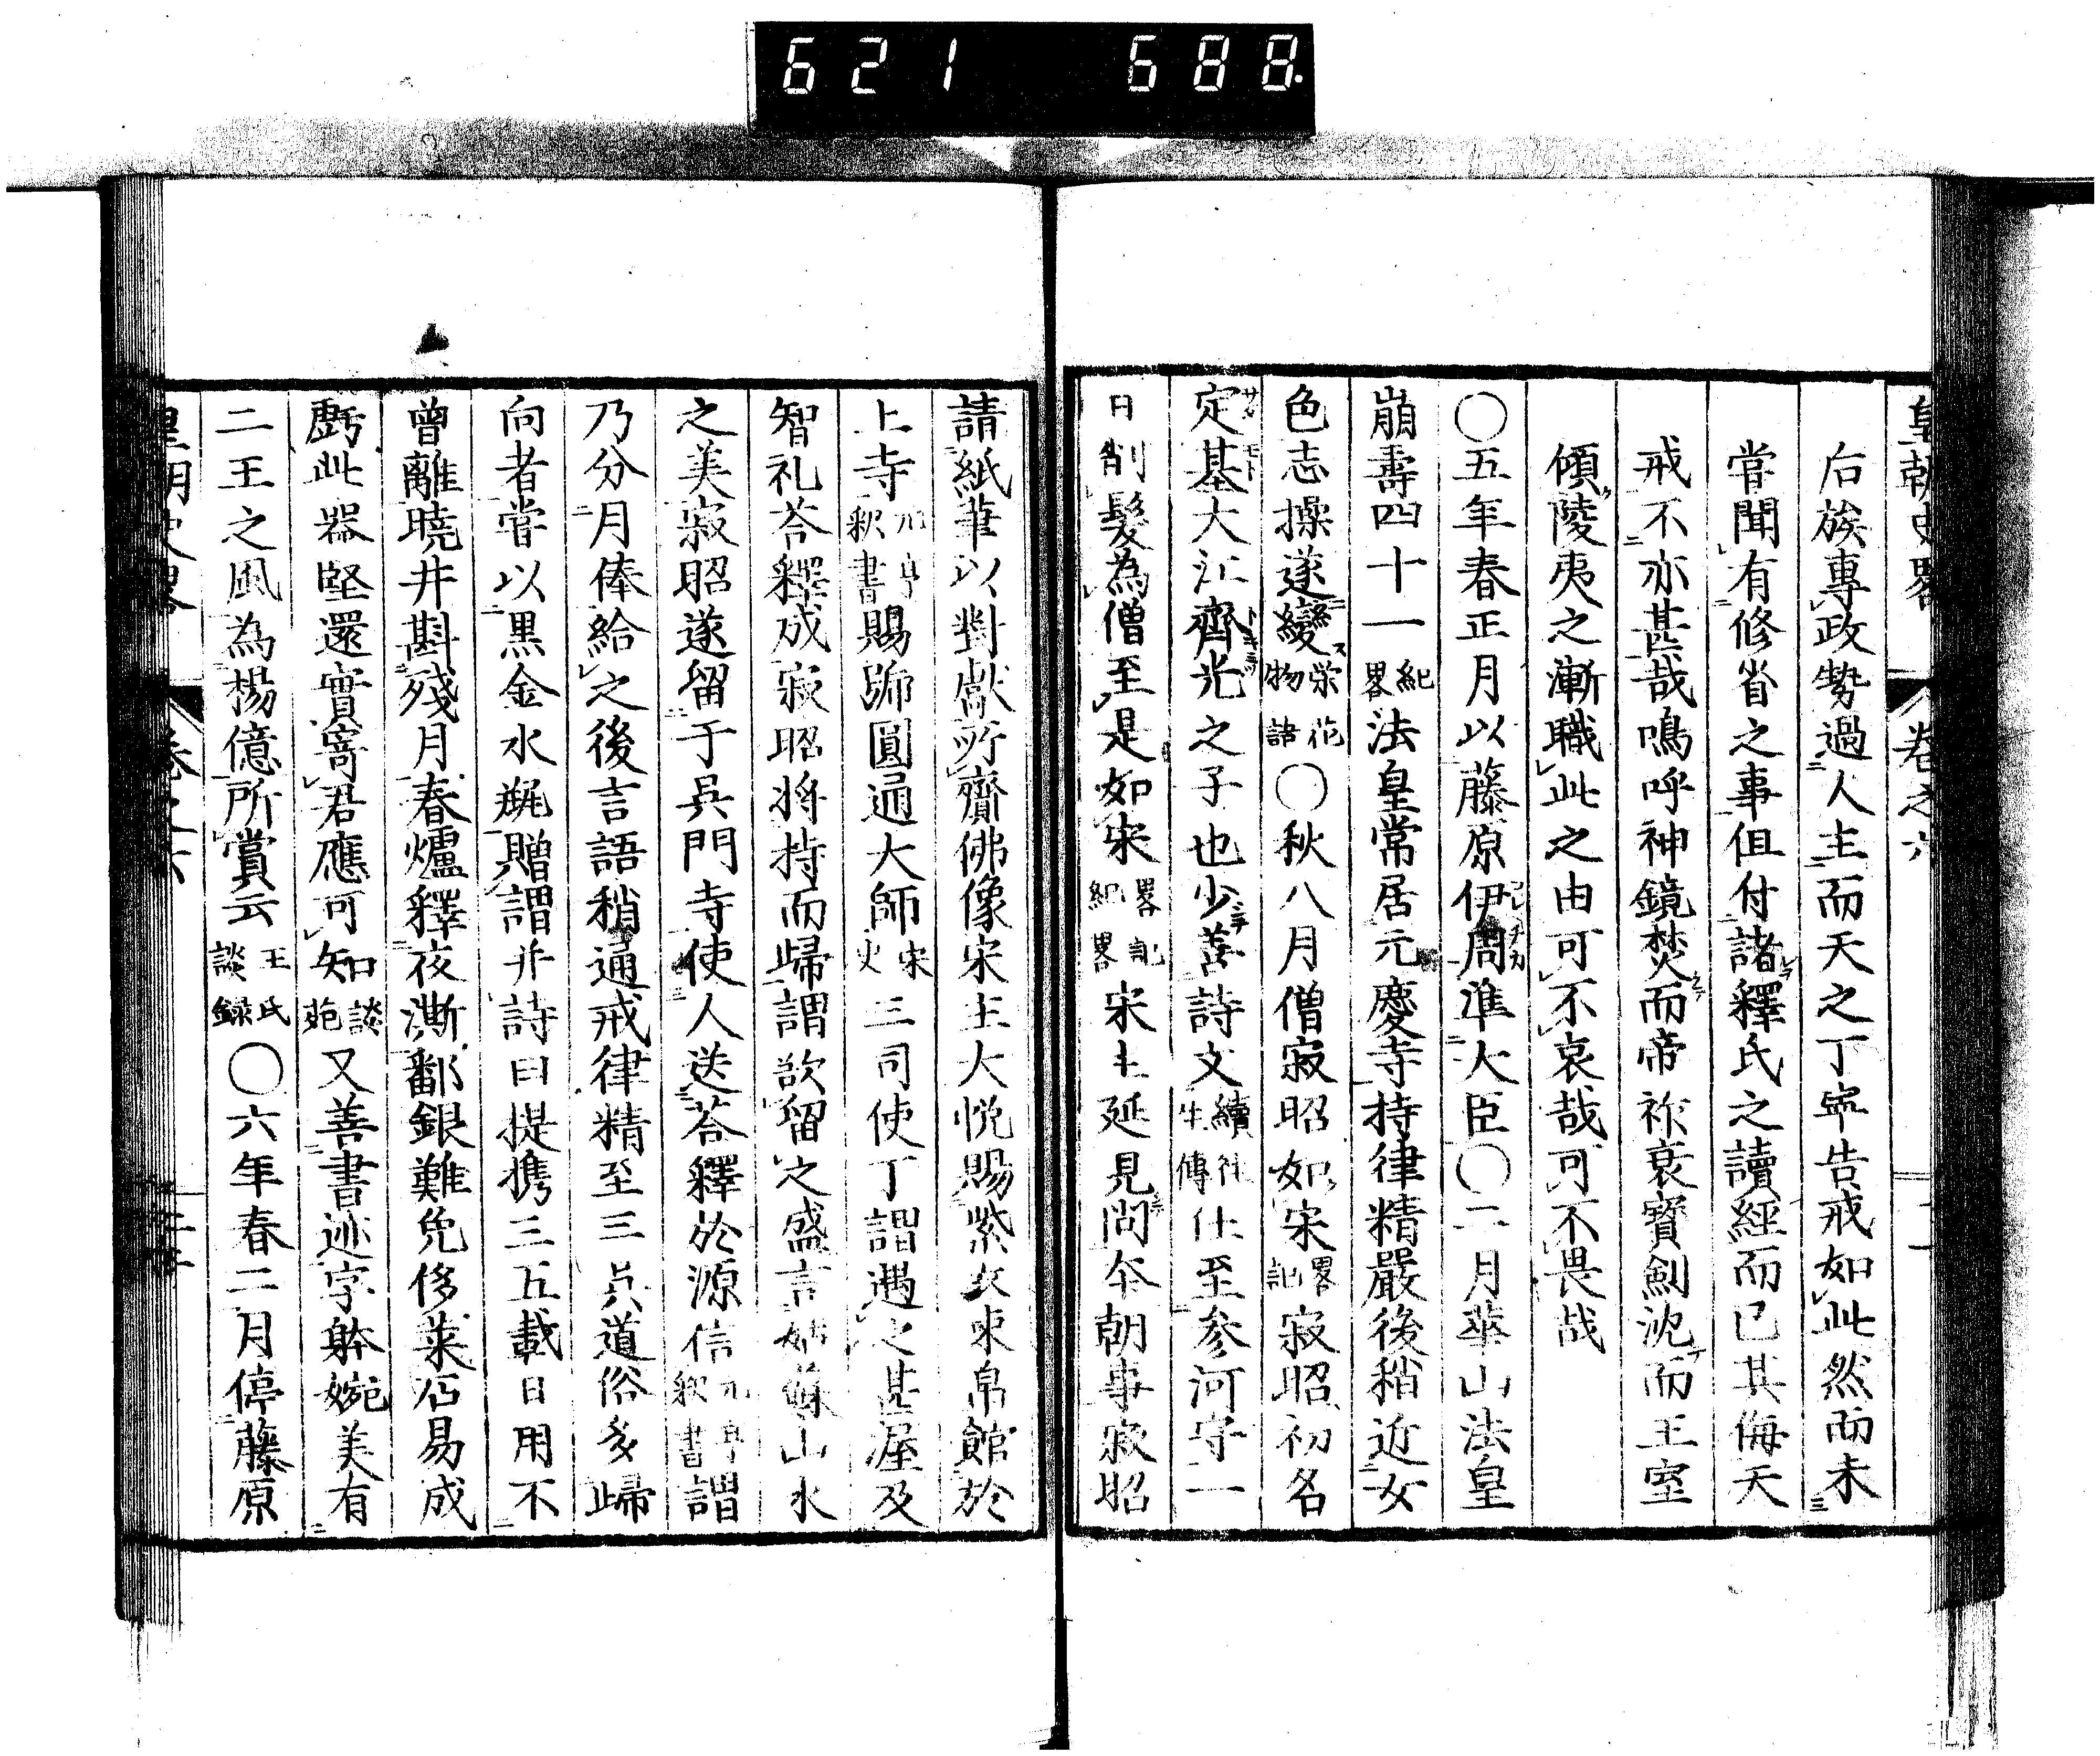 621 688
皇朝史畧 卷之六
后族專政勢過人主而天之丁寧告戒如此然而未
嘗聞有修省之事但付諸釋氏之讀經而已其侮天
戒不亦甚哉嗚呼神鏡焚而帝祚衰寳劍沈而王室
傾陵夷之漸職此之由可不哀哉可不畏哉
〇五年春正月以藤原伊周準大臣〇二月華山法皇
崩壽四十一紀畧法皇常居元慶寺持律精嚴後稍近女
色志操遂變榮花物語〇秋八月僧寂昭如宋畧記寂昭初名
定基大江齊光之子也少善詩文續往生傳仕至參河守一
日削髮為僧至是如宋畧記紀畧宋主延見問本朝事寂昭
請紙筆以對獻所齎佛像宋主大悦賜紫衣束帛館於
上寺元亨釈書賜号圓通大師宋史三司使丁謂遇之甚渥及
智礼荅釋成寂昭将持而歸謂欲留之盛言姑蘇山水
之美寂昭遂留于呉門寺使人送荅釋於源信元亨釈書謂
乃分月俸給之後言語稍通戒律精至三呉道俗多歸
向者嘗以黒金水瓶贈謂并詩曰提携三五載日用不
曾離曉井斟殘月春爐釋夜澌鄱銀難免侈莱石易成
虧此器堅還實寄君應可知談苑又善書迹字躰婉美有
二王之風為楊億所賞云王氏談録〇六年春二月停藤原
皇朝史畧 卷之六